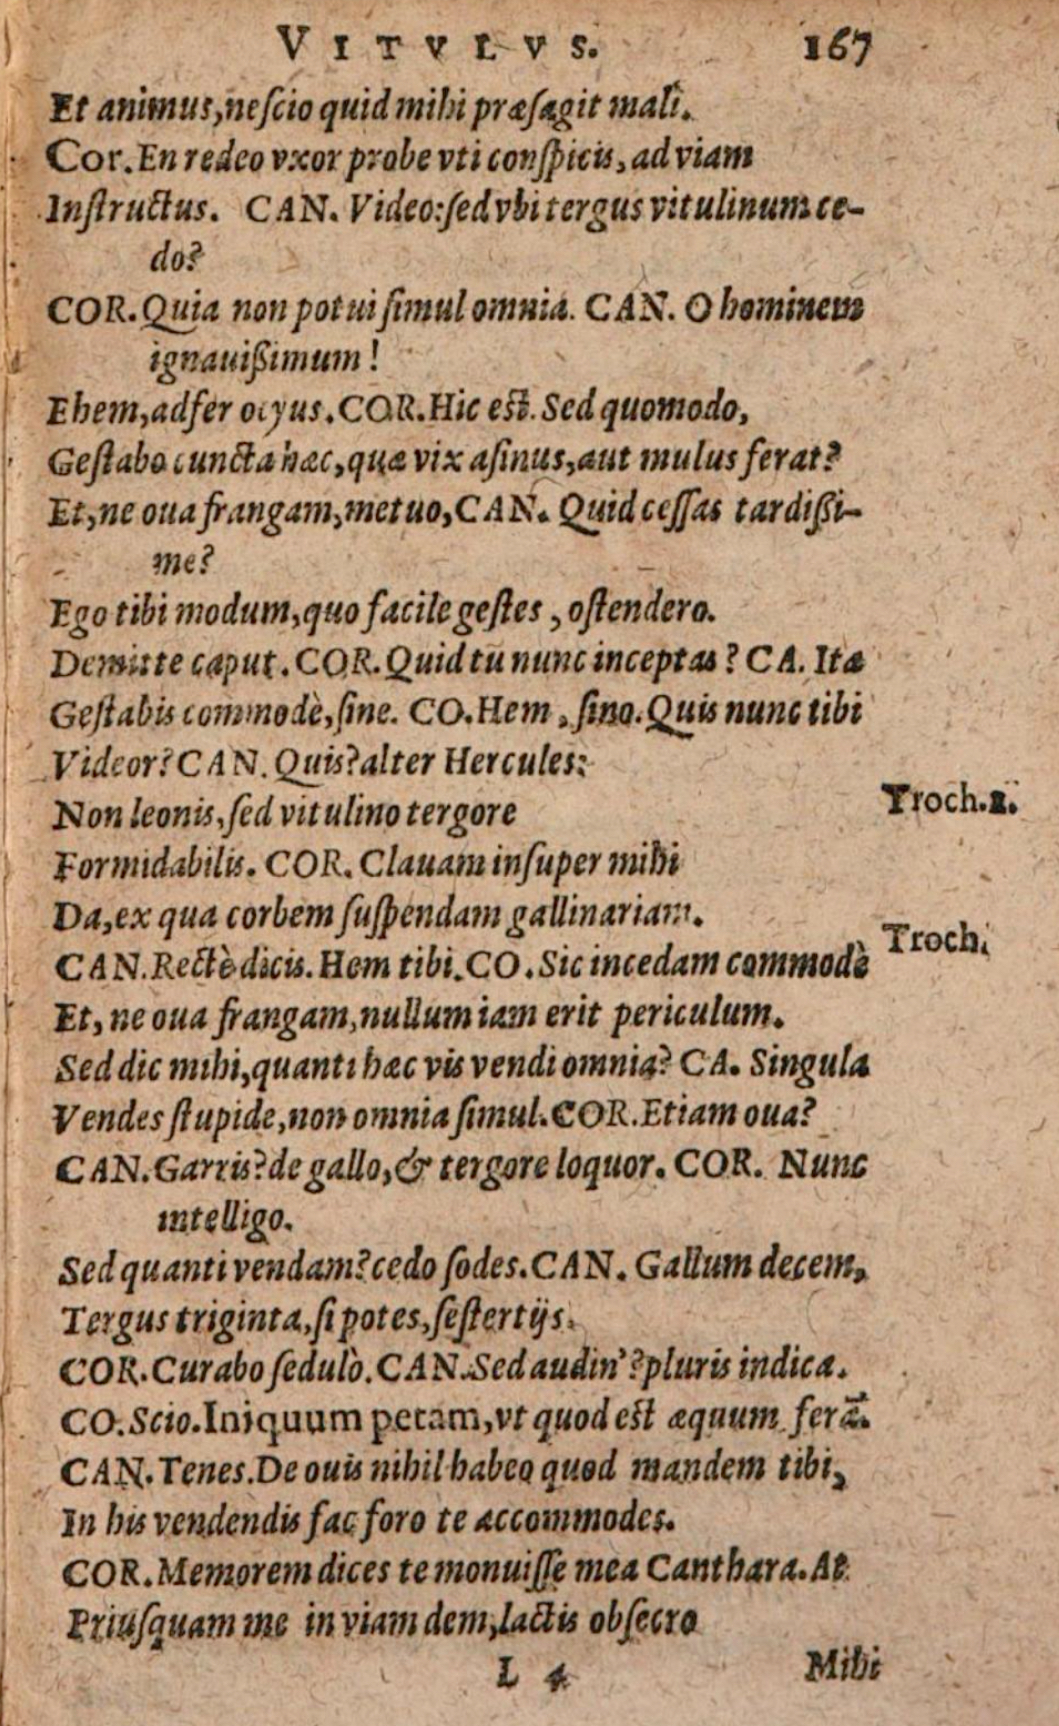 VITVLVS. 167
Et animus, neſcio quid mihi præſagit mali.
Cor. En redeo vxor probe vti conſpicis, ad viam
Inſtructus. CAN. Video: ſed vbi tergus vitulinum ce-
do?
COR. Quia non potui ſimul omnia. CAN. O hominem
ignauißimum!
Ehem, adfer ocyus. COR. Hic est. Sed quomodo,
Geſtabo cuncta hæc, quæ vix aſinus, aut mulus ferat?
Et, ne oua frangam, metuo, CAN. Quid ceſſas tardißi-
me?
Ego tibi modum, quo facile geſtes, oſtendero.
Demitte caput. COR. Quid tu nunc inceptas? CA. Ita
Geſtabis commodè, ſine. CO. Hem, ſino. Quis nunc tibi
Videor? CAN. Quis? alter Hercules:
Non leonis, ſed vitulino tergore Troch. 2.
Formidabilis. COR. Clauam inſuper mihi
Da, ex qua corbem ſuſpendam gallinariam.
CAN. Rectè dicis. Hem tibi. CO. Sic incedam commodè Troch.
Et, ne oua frangam, nullum iam erit periculum.
Sed dic mihi, quanti hæc vis vendi omnia? CA. Singula
Vendes ſtupide, non omnia ſimul. COR. Etiam oua?
CAN. Garris? de gallo, & tergore loquor. COR. Nunc
intelligo.
Sed quanti vendam? cedo ſodes. CAN. Gallum decem,
Tergus triginta, ſi potes, ſeſtertijs.
COR. Curabo ſedulò. CAN. Sed audin'? pluris indica.
CO. Scio. Iniquum petam, vt quod est æquum ferã.
CAN. Tenes. De ouis nihil habeo quod mandem tibi,
In his vendendis fac foro te accommodes.
COR. Memorem dices te monuiſſe mea Canthara. At
Priuſquam me in viam dem, lactis obſecro
L 4 Mihi